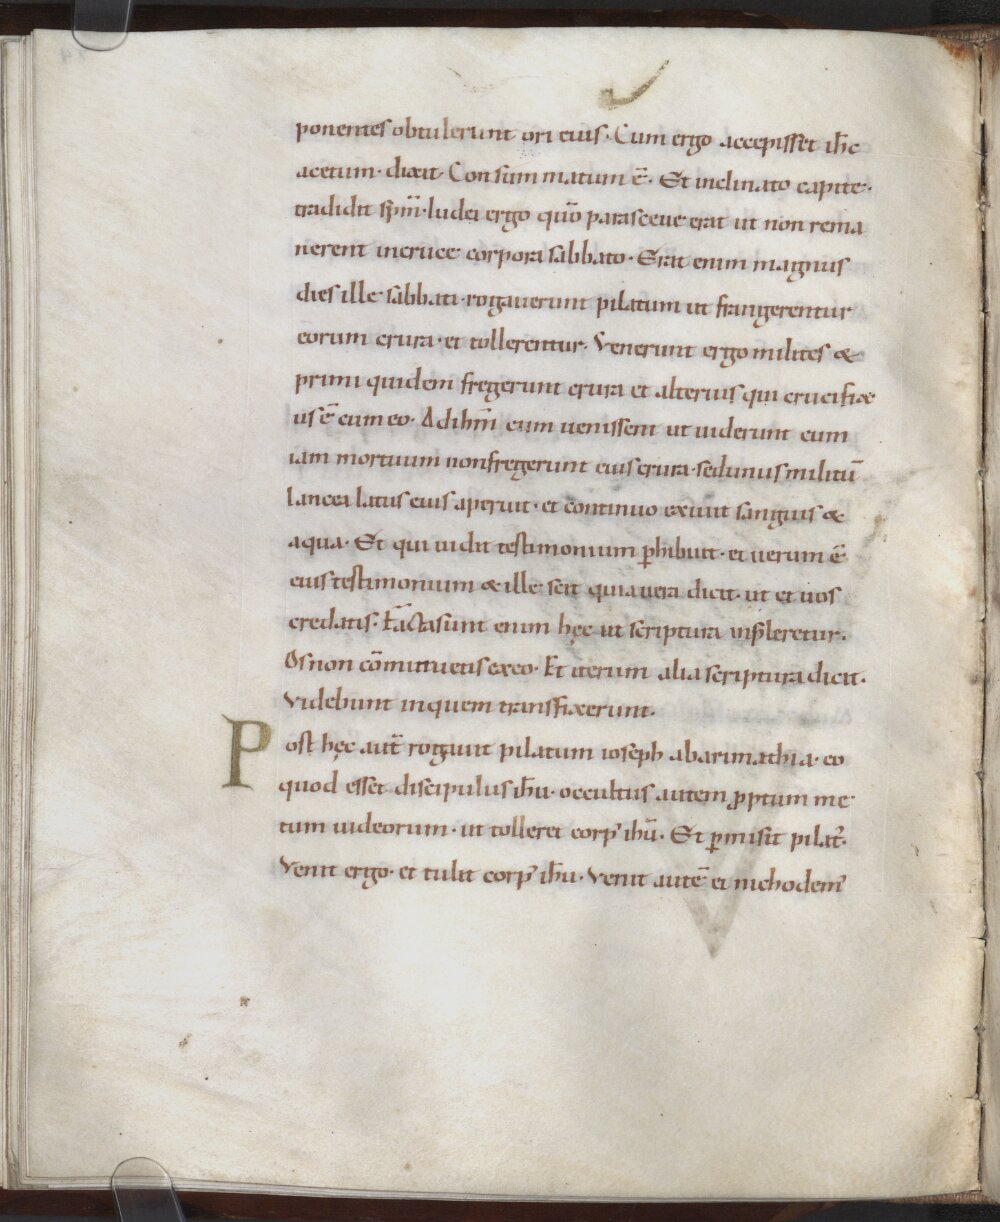 ponentes obtulerunt ori eius· Cum ergo accepisset ihc̄
acetum· dixit· Consummatum ē· Et inclinato capite·
tradidit sp̄m· Iudei ergo qūo parasceue erat ut non rema
nerent incruce corpora sabbato· Erat enim magnus
dies ille sabbati· rogauerunt pilatum ut frangerentur
eorum crura· et tollerentur· Venerunt ergo milites &
primi quidem fregerunt crura et alterius qui crucifix
us ē cum eo· Ad ihm̄ cum uenissent ut uiderunt eum
iam mortuum nonfregerunt eius crura· sed unus militū
lancea latus eius aperuit· et continuo exiuit sanguis &
aqua· Et qui uidit testimonium ꝑhibuit· et uerum ē
eius testimonium & ille scit quia uera dicit· ut et uos
credatis· Facta sunt enim hęc ut scriptura impleretur·
Os non cōminuetis exeo· Et iterum alia scriptura dicit·
Videbunt inquem transfixerunt·
Post hęc aut̄ rogauit pilatum ioseph abarimathia· eo
quod esset discipulus ihū· occultus autem ꝓptum me
tum iudeorum· ut tolleret corpꝰ ihū· Et ꝑmisit pilatꝰ·
Venit ergo· et tulit corpꝰ ihū· Venit autē et nichodemꝰ